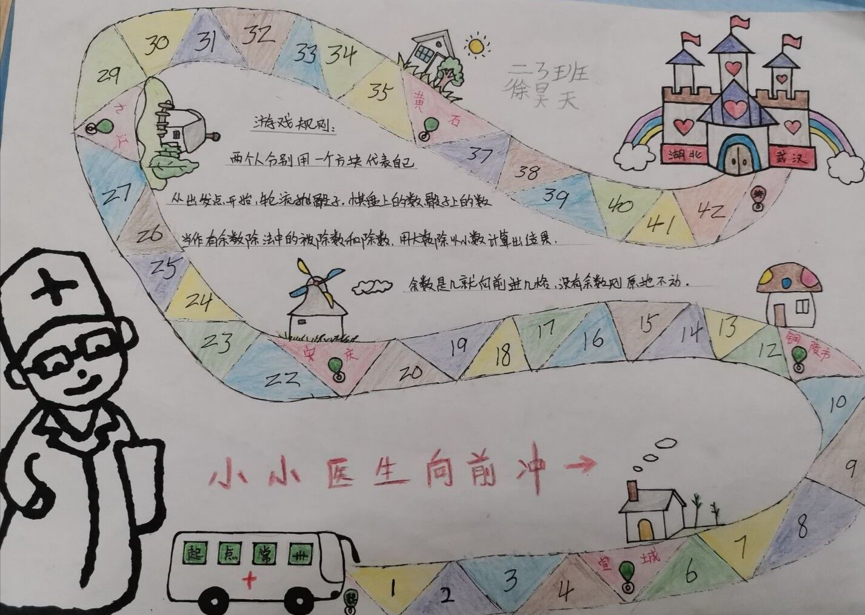 29 30 31 32 33 34 35
黄石
37 38 39 40 41 42
湖北 武汉
二3班
徐昊天
九江
27
26
25
24
23
22
安庆
20 19 18 17 16 15 14 13 12
铜陵市
10
9
8
7
6
宣城
4 3 2 1
起点常州
游戏规则:
两个人分别用一个方块代表自己
从出发点开始,轮流抛骰子.棋垂上的数骰子上的数
当作有余数除法中的被除数和除数,用大数除以小数计算出结果.
余数是几就向前进几格,没有余数则原地不动.
小小医生向前冲→